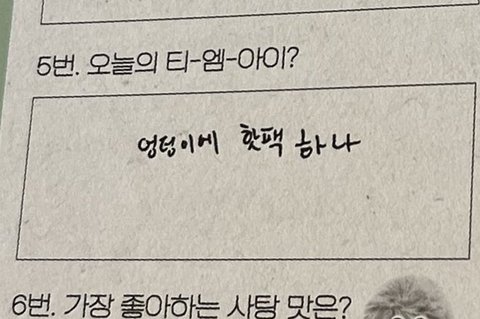 5번. 오늘의 티-엠-아이?
엉덩이에 핫팩 하나
6번. 가장 좋아하는 사탕 맛은?